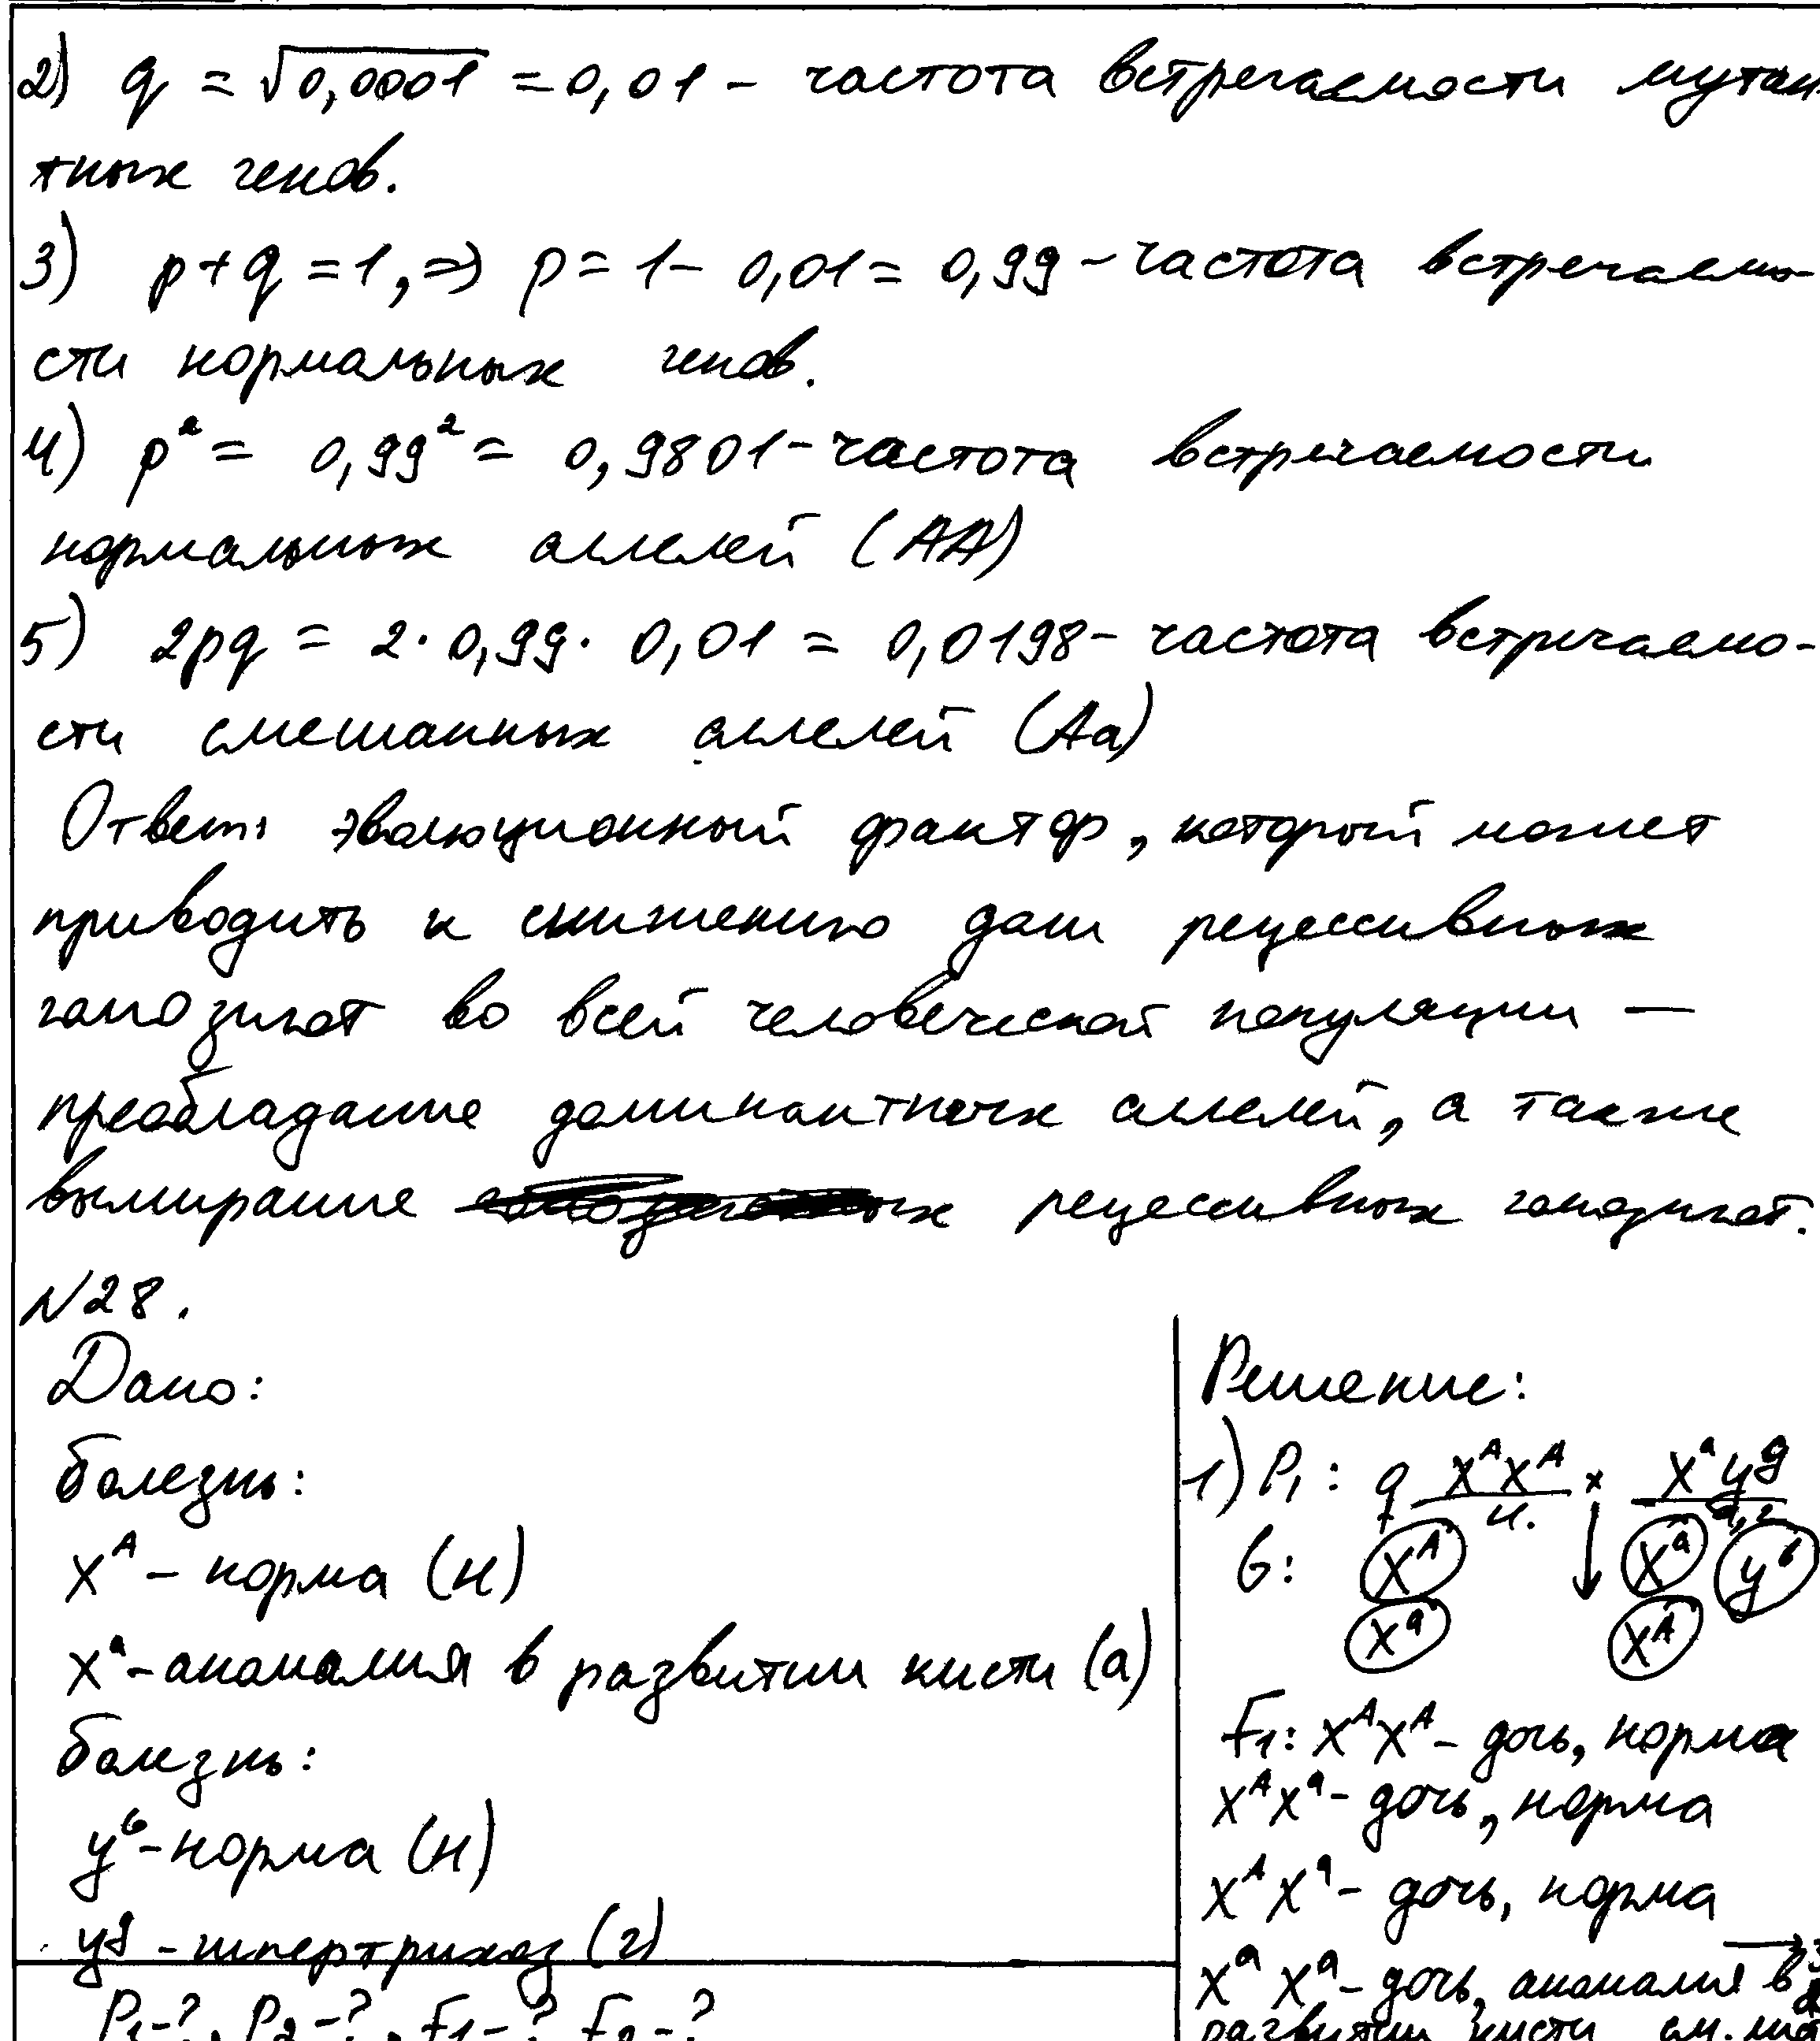 2) q = √0,0001 = 0,01 – частота встречаемости мутан-
тных генов.
3) p+q = 1, ⇒ p = 1 – 0,01 = 0,99 – частота встречаемо-
сти нормальных генов.
4) p² = 0,99² = 0,9801 – частота встречаемости
нормальных аллелей (AA)
5) 2pq = 2 · 0,99 · 0,01 = 0,0198 – частота встречаемо-
сти смешанных аллелей (Aa)
Ответ: эволюционный фактор, который может
приводить к снижению доли рецессивных
гомозигот во всей человеческой популяции —
преобладание доминантных аллелей, а также
вымирание рецессивных гомозигот.
N28.
Дано:
болезнь:
Xᴬ – норма (н)
Xᵃ – аномалия в развитии кисти (а)
болезнь:
yᵇ – норма (н)
yᵍ – гипертрихоз (г)
P₁ – ?, P₂ – ?, F₁ – ?, F₂ – ?
Решение:
1) P₁: ♀ XᴬXᴬ × Xᵃyᵍ
н. а,г
G: Xᴬ ↓ Xᵃ yᵇ
Xᵃ Xᴬ
F₁: XᴬXᴬ – дочь, норма
XᴬXᵃ – дочь, норма
XᴬXᵃ – дочь, норма
XᵃXᵃ – дочь, аномалия в
развитии кисти